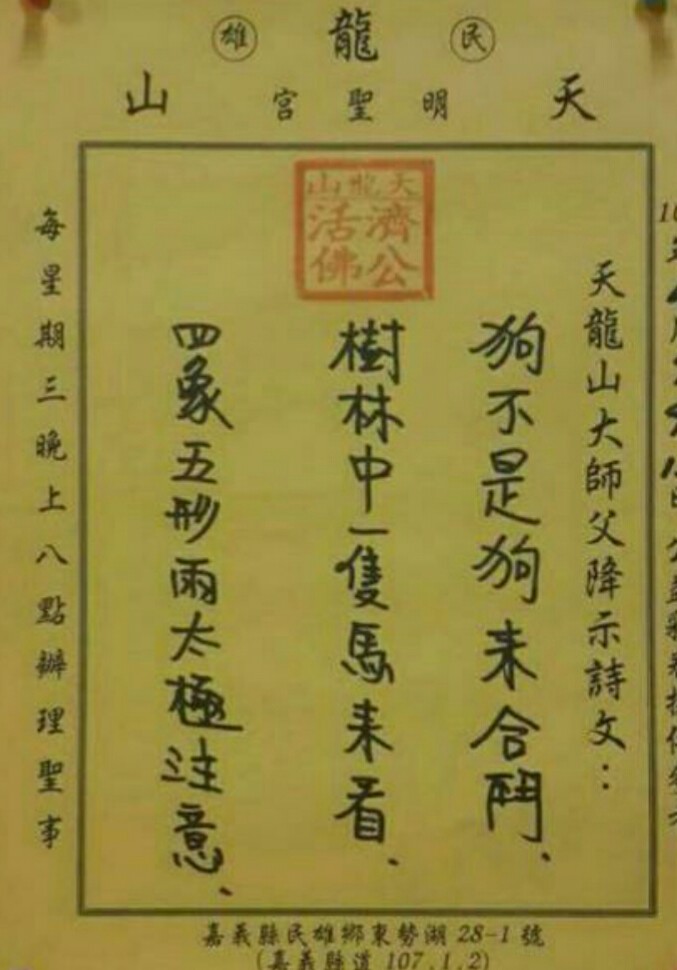 民龍雄
天明聖宮山
天龍山
濟公
活佛
天龍山大師父降示詩文：
狗不是狗来合鬥、
樹林中一隻馬来看、
四象五形雨太極注意、
每星期三晚上八點辦理聖事
嘉義縣民雄鄉東勢湖 28-1 號
(嘉義縣道 107.1.2)